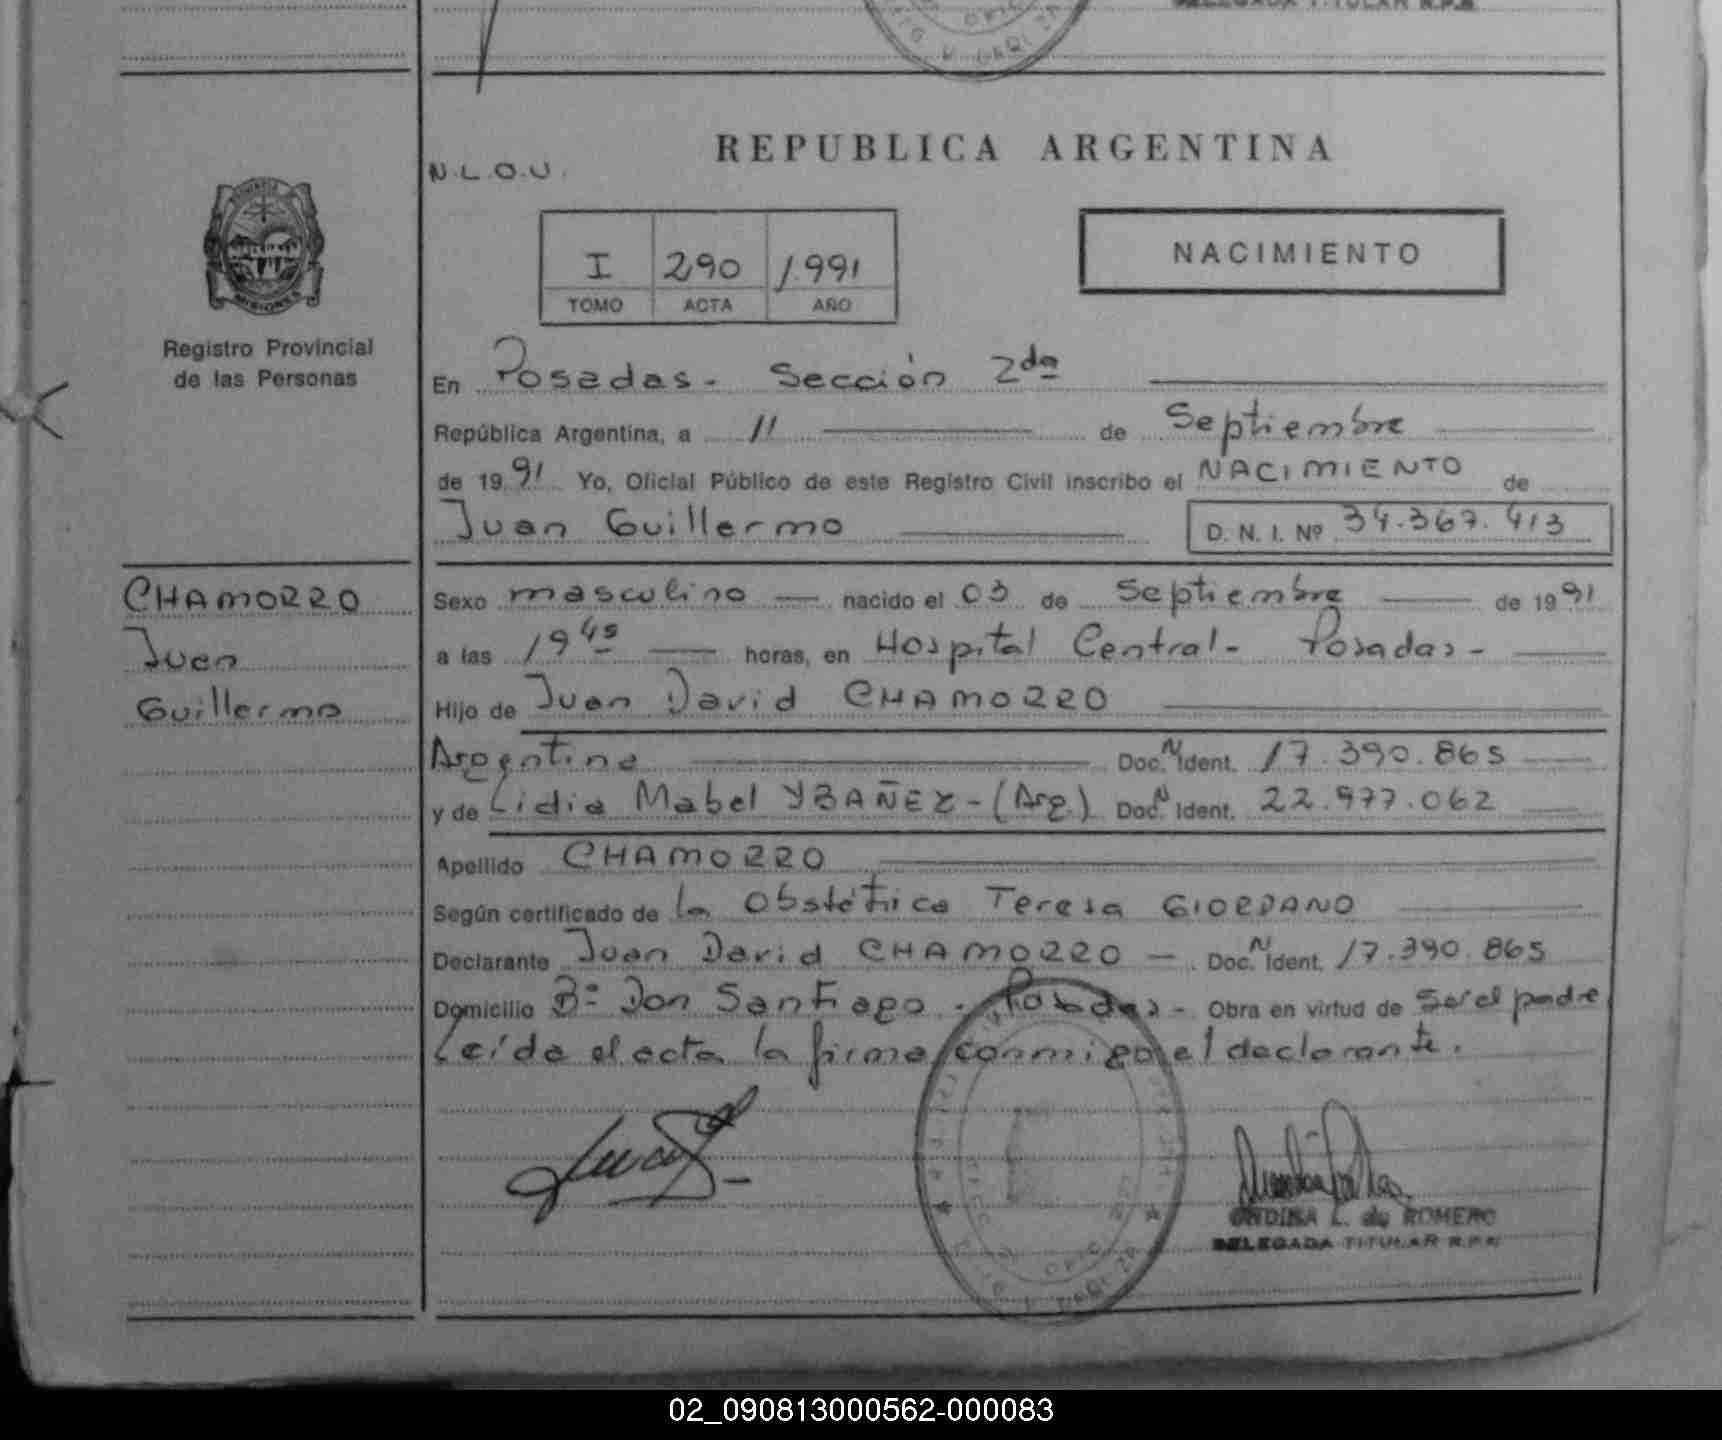 DELEGADA TITULAR R.P.P.
REPUBLICA ARGENTINA
N.L.O.U.
I 290 1.991
TOMO ACTA AÑO
NACIMIENTO
MISIONES
Registro Provincial
de las Personas
En Posadas - Sección 2da
República Argentina, a 11 de Septiembre
de 1991 Yo, Oficial Público de este Registro Civil inscribo el NACIMIENTO de
Juan Guillermo D. N. I. Nº 34.367.413
CHAMORRO
Juan
Guillermo
Sexo masculino nacido el 03 de Septiembre de 1991
a las 19 45 horas, en Hospital Central - Posadas -
Hijo de Juan David CHAMORRO
Argentina Doc. N Ident. 17.390.865
y de Lidia Mabel YBAÑEZ - (Arg.) Doc. N Ident. 22.977.062
Apellido CHAMORRO
Según certificado de la Obstétrica Teresa GIORDANO
Declarante Juan David CHAMORRO - Doc. N Ident. 17.390.865
Domicilio Bº Don Santiago - Posadas - Obra en virtud de ser el padre
Leída el acta la firma conmigo el declarante.
ONDINA L. de ROMERO
DELEGADA TITULAR R.P.P.
02_090813000562-000083